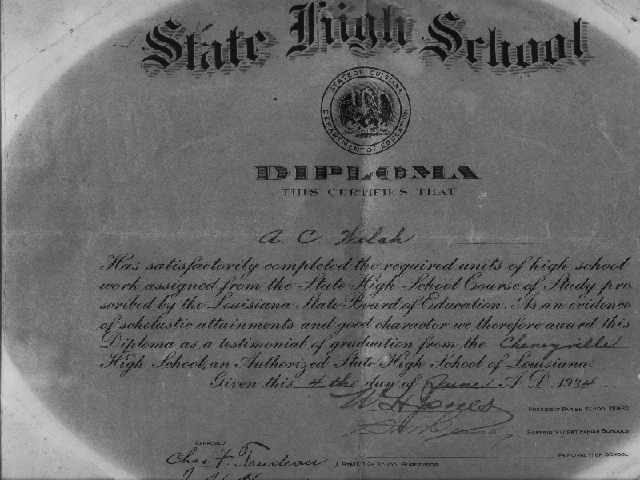 State High School
STATE OF LOUISIANA
DEPARTMENT OF EDUCATION
DIPLOMA
THIS CERTIFIES THAT
A C Welsh
Has satisfactorily completed the required units of high school
work assigned from the State High School Course of Study pre
scribed by the Louisiana State Board of Education. As an evidence
of scholastic attainments and good character we therefore award this
Diploma as a testimonial of graduation from the Cheneyville
High School, an Authorized State High School of Louisiana.
Given this 4 the day of June A. D. 1934
PRESIDENT PARISH SCHOOL BOARD
SUPERINTENDENT PARISH SCHOOLS
PRINCIPAL OF SCHOOL
APPROVED
Chas F. Trudeau